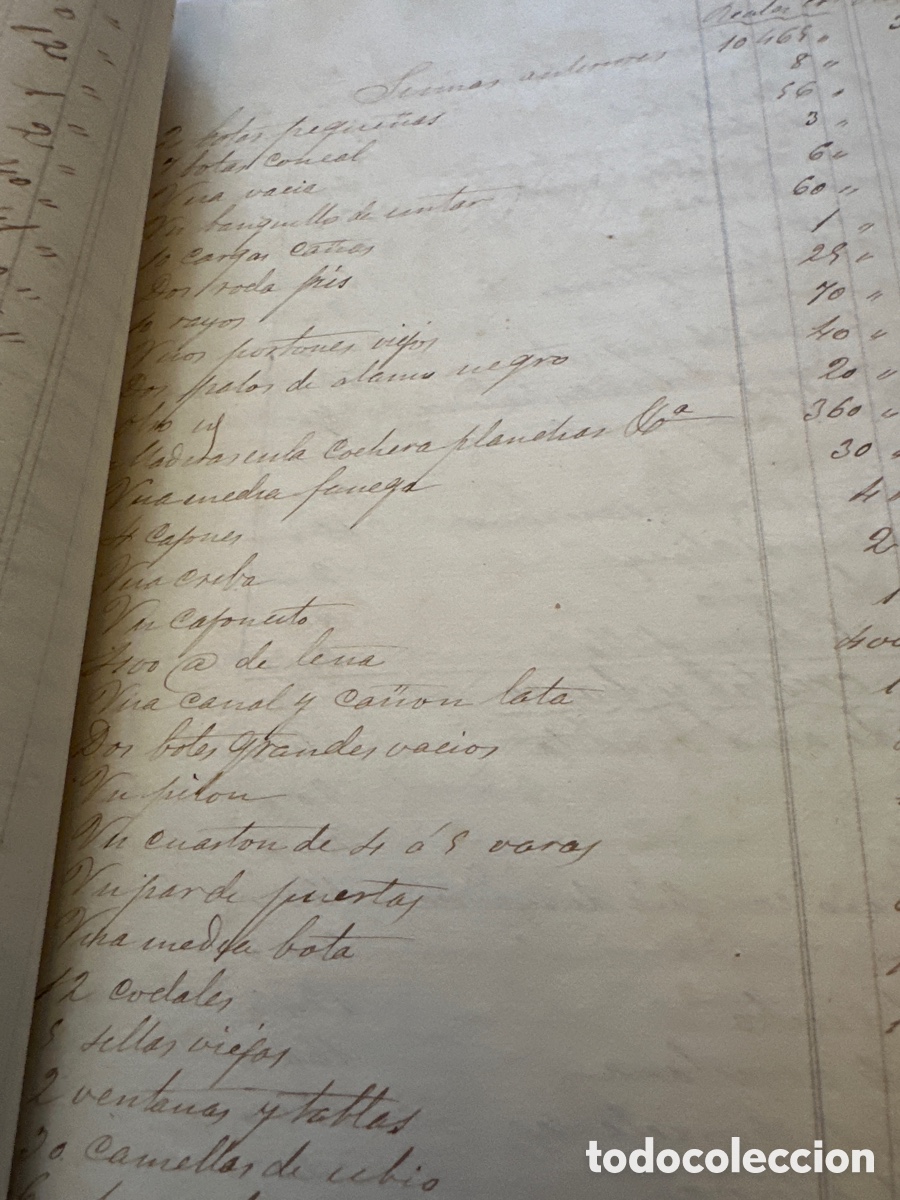 Reales
Sumas anteriores 10 465 "
2 botas pequeñas 8 "
botas coneal 56 "
Una vacia 3 "
Un banquillo de untar 6 "
10 cargas cañas 60 "
Dos roda pies 1 "
10 rayos 25 "
Unos portones viejos 70 "
Dos palos de alamo negro 40 "
otro id 20 "
Maderas en la cochera planchas &a 360 "
Una media fanega 30 "
4 cajones 4
Una criba 2
Un cajoncito 1
400 @ de leña 400
Una canal y cañon lata 1
Dos botes grandes vacios
Un pilon
Un cuarton de 4 á 5 varas
Un par de puertas
Una media bota
12 codales
5 sillas viejas
2 ventanas y tablas
30 camellas de ubio
todocoleccion